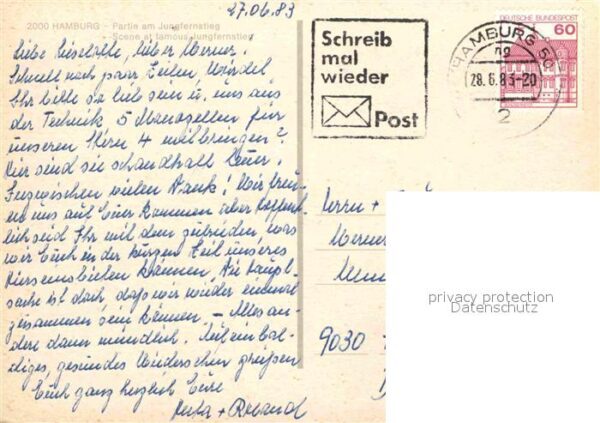 27.06.83
2000 HAMBURG - Partie am Jungfernstieg
- Scene at famous Jungfernstieg
Liebe Lieselotte, lieber Werner,
Schnell noch paar Zeilen. Würdet
Ihr bitte so lieb sein u. uns aus
der Technik 5 für
unseren Stern 4 mitbringen?
Hier sind sie schandhaft teuer.
Inzwischen vielen Dank! Wir freu-
en uns auf Euer Kommen aber hoffent-
lich seid Ihr mit dem zufrieden, was
wir Euch in der kurzen Zeit unseres
Hierseins bieten können. Die Haupt-
sache ist doch, dass wir wieder einmal
zusammen sein können. - Alles an-
dere dann mündlich. Auf ein bal-
diges, gesundes Wiedersehen grüßen
Euch ganz herzlich Eure
+ Roland
Schreib
mal
wieder
Post
HAMBURG
28.6.83-20
2
DEUTSCHE BUNDESPOST
60
Herrn +
Werner
9030
privacy protection
Datenschutz